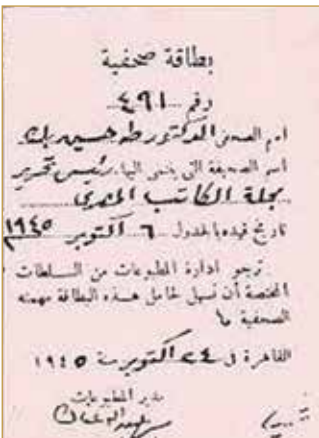 بطاقة صحفية
رقم ٤٩١
اسم الصحفى الدكتور طه حسين بك
اسم الصحيفة التى ينتمى اليها رئيس تحرير
مجلة الكاتب المصرى
تاريخ قيده بالجدول ٦ اكتوبر ١٩٤٥
ترجو ادارة المطبوعات من السلطات
المختصة أن تسهل لحامل هذه البطاقة مهمته
الصحفية
القاهرة فى ٢٤ اكتوبر سنة ١٩٤٥
مدير المطبوعات